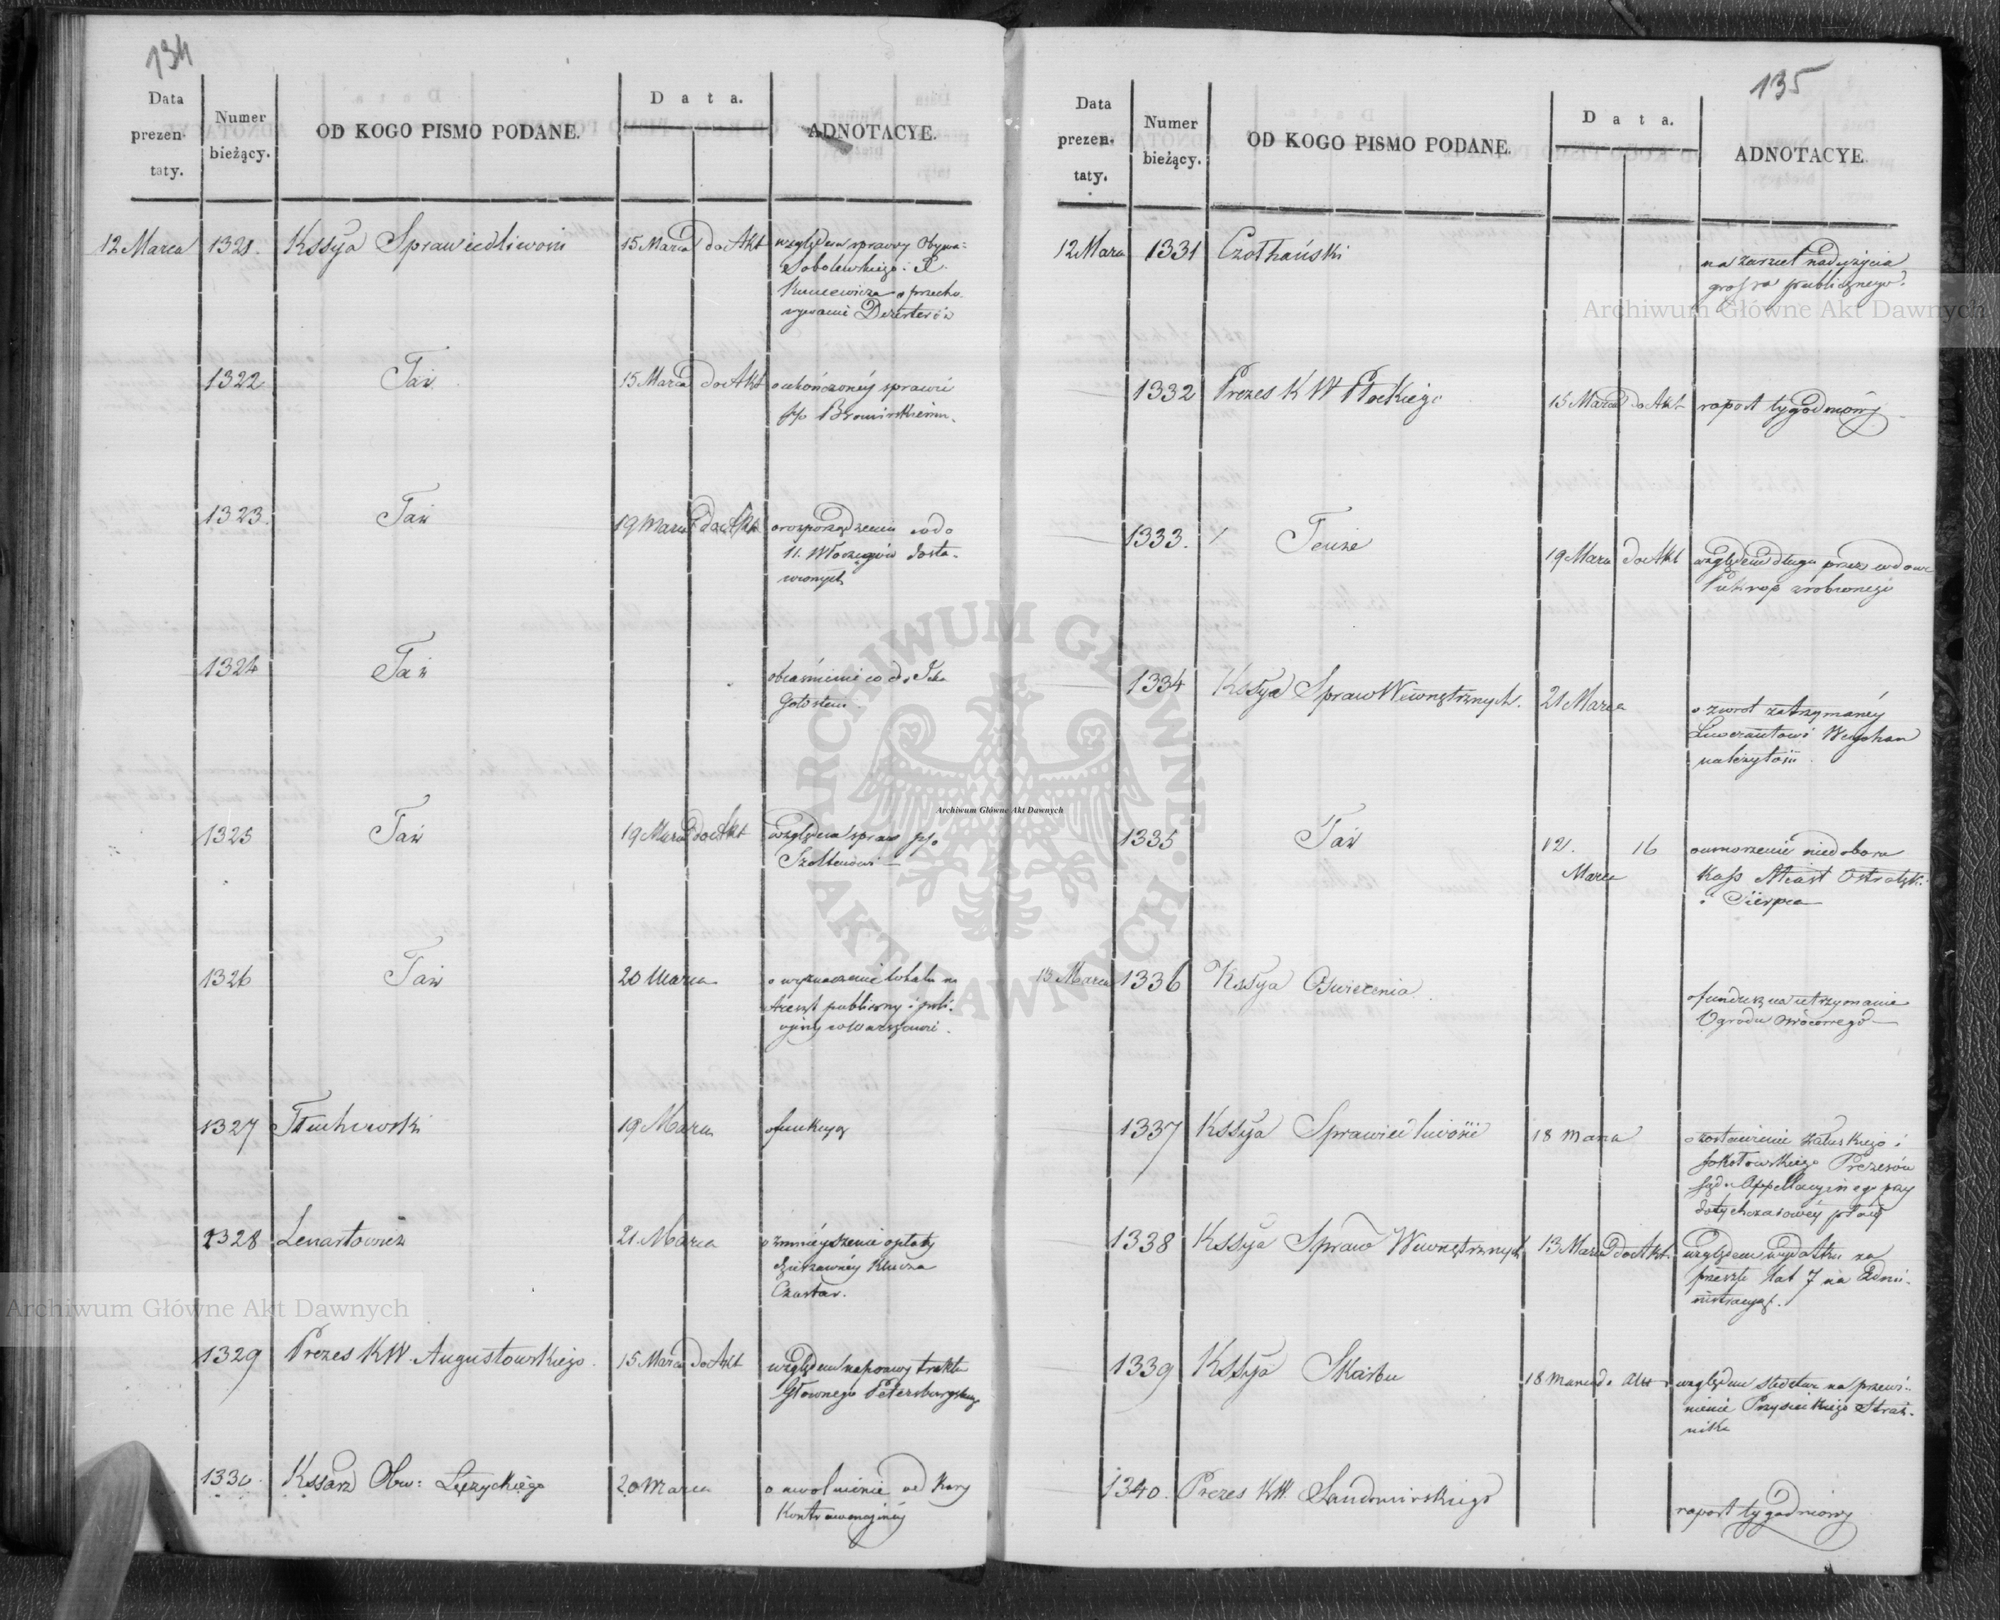 134
Data prezen- taty.
Numer bieżący.
OD KOGO PISMO PODANE.
Data.
ADNOTACYE.
12 Marca 1321. Kssya Sprawiedliwości 15 Marca do Akt względem sprawy Obywa:
Sobolewskiego i P.
Kuncewicza o przecho-
wywanie Dezerterów
1322 Taż 15 Marca do Akt o ukończoney sprawie
p/o Bromirskiemu.
1323. Taż 19 Marca do Akt o rozporządzeniu co do
11. Włóczęgów dosta-
wionych
1324 Taż obiaśnienie co do
1325 Taż 19 Marca do Akt względem spraw p/o
1326 Taż 20 Marca o wyznaczenie lokalu na
Areszt publiczny i poli-
cyiny w Warszawie.
1327 Tłuchowski 19 Marca o funkcyą
1328 Lenartowicz 21 Marca o zmnieyszenie opłaty
dzierżawney Klucza
Czastar.
1329 Prezes KW. Augustowskiego. 15 Marca do Akt względem naprawy traktu
Głównego Petersburgskiego
1330. Kssarz Obw: Łęczyckiego 20 Marca o uwolnienie od Kary
Kontrawencyiney
135
Data prezen- taty.
Numer bieżący.
OD KOGO PISMO PODANE.
Data.
ADNOTACYE.
12 Marca 1331 Czołhański na zarzut nadużycia
grosza publicznego.
1332 Prezes KW Płockiego 15 Marca do Akt raport tygodniowy
1333. Tenże 19 Marca do Akt względem długu przez wdowę
zrobionego
1334 Kssya Spraw Wewnętrznych. 21 Marca o zwrot zatrzymaney
Liwerantowi
należytości.
1335 Taż 12. 16
Marca
o umorzenie niedoboru
Kass Miast Ostrołęki
i Sierpca
13 Marca 1336 Kssya Oświecenia. o fundusz na utrzymanie
Ogrodu owocowego
1337 Kssya Sprawiedliwości 18 Marca o zostawienie Załuskiego i
Sokołowskiego Prezesów
Sądu Appellacyinego przy
dotychczasowey płacy
1338 Kssya Spraw Wewnętrznych 13 Marca do Akt. względem wydatku na
przeszłe lat 7 na Admi-
nistracyą.
1339 Kssya Skarbu 18 Marca do Akt względem śledztwa na przewi-
nienie Straż-
nika
1340. Prezes KW. Sandomirskiego raport tygodniowy
Archiwum Główne Akt Dawnych
Archiwum Główne Akt Dawnych
Archiwum Główne Akt Dawnych
ARCHIWUM GŁÓWNE AKT DAWNYCH